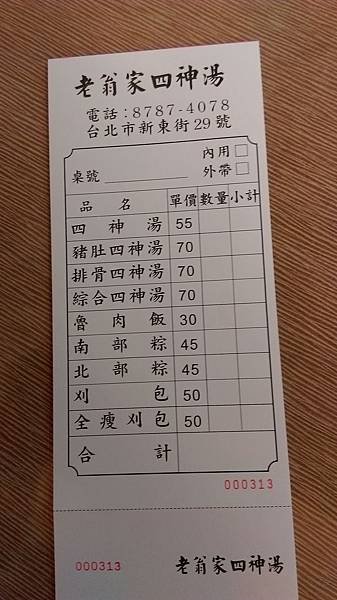 老翁家四神湯
電話：8787-4078
台北市新東街29號
內用□
桌號 外帶□
品名 單價 數量 小計
四神湯 55
豬肚四神湯 70
排骨四神湯 70
綜合四神湯 70
魯肉飯 30
南部粽 45
北部粽 45
刈包 50
全瘦刈包 50
合計
000313
000313 老翁家四神湯